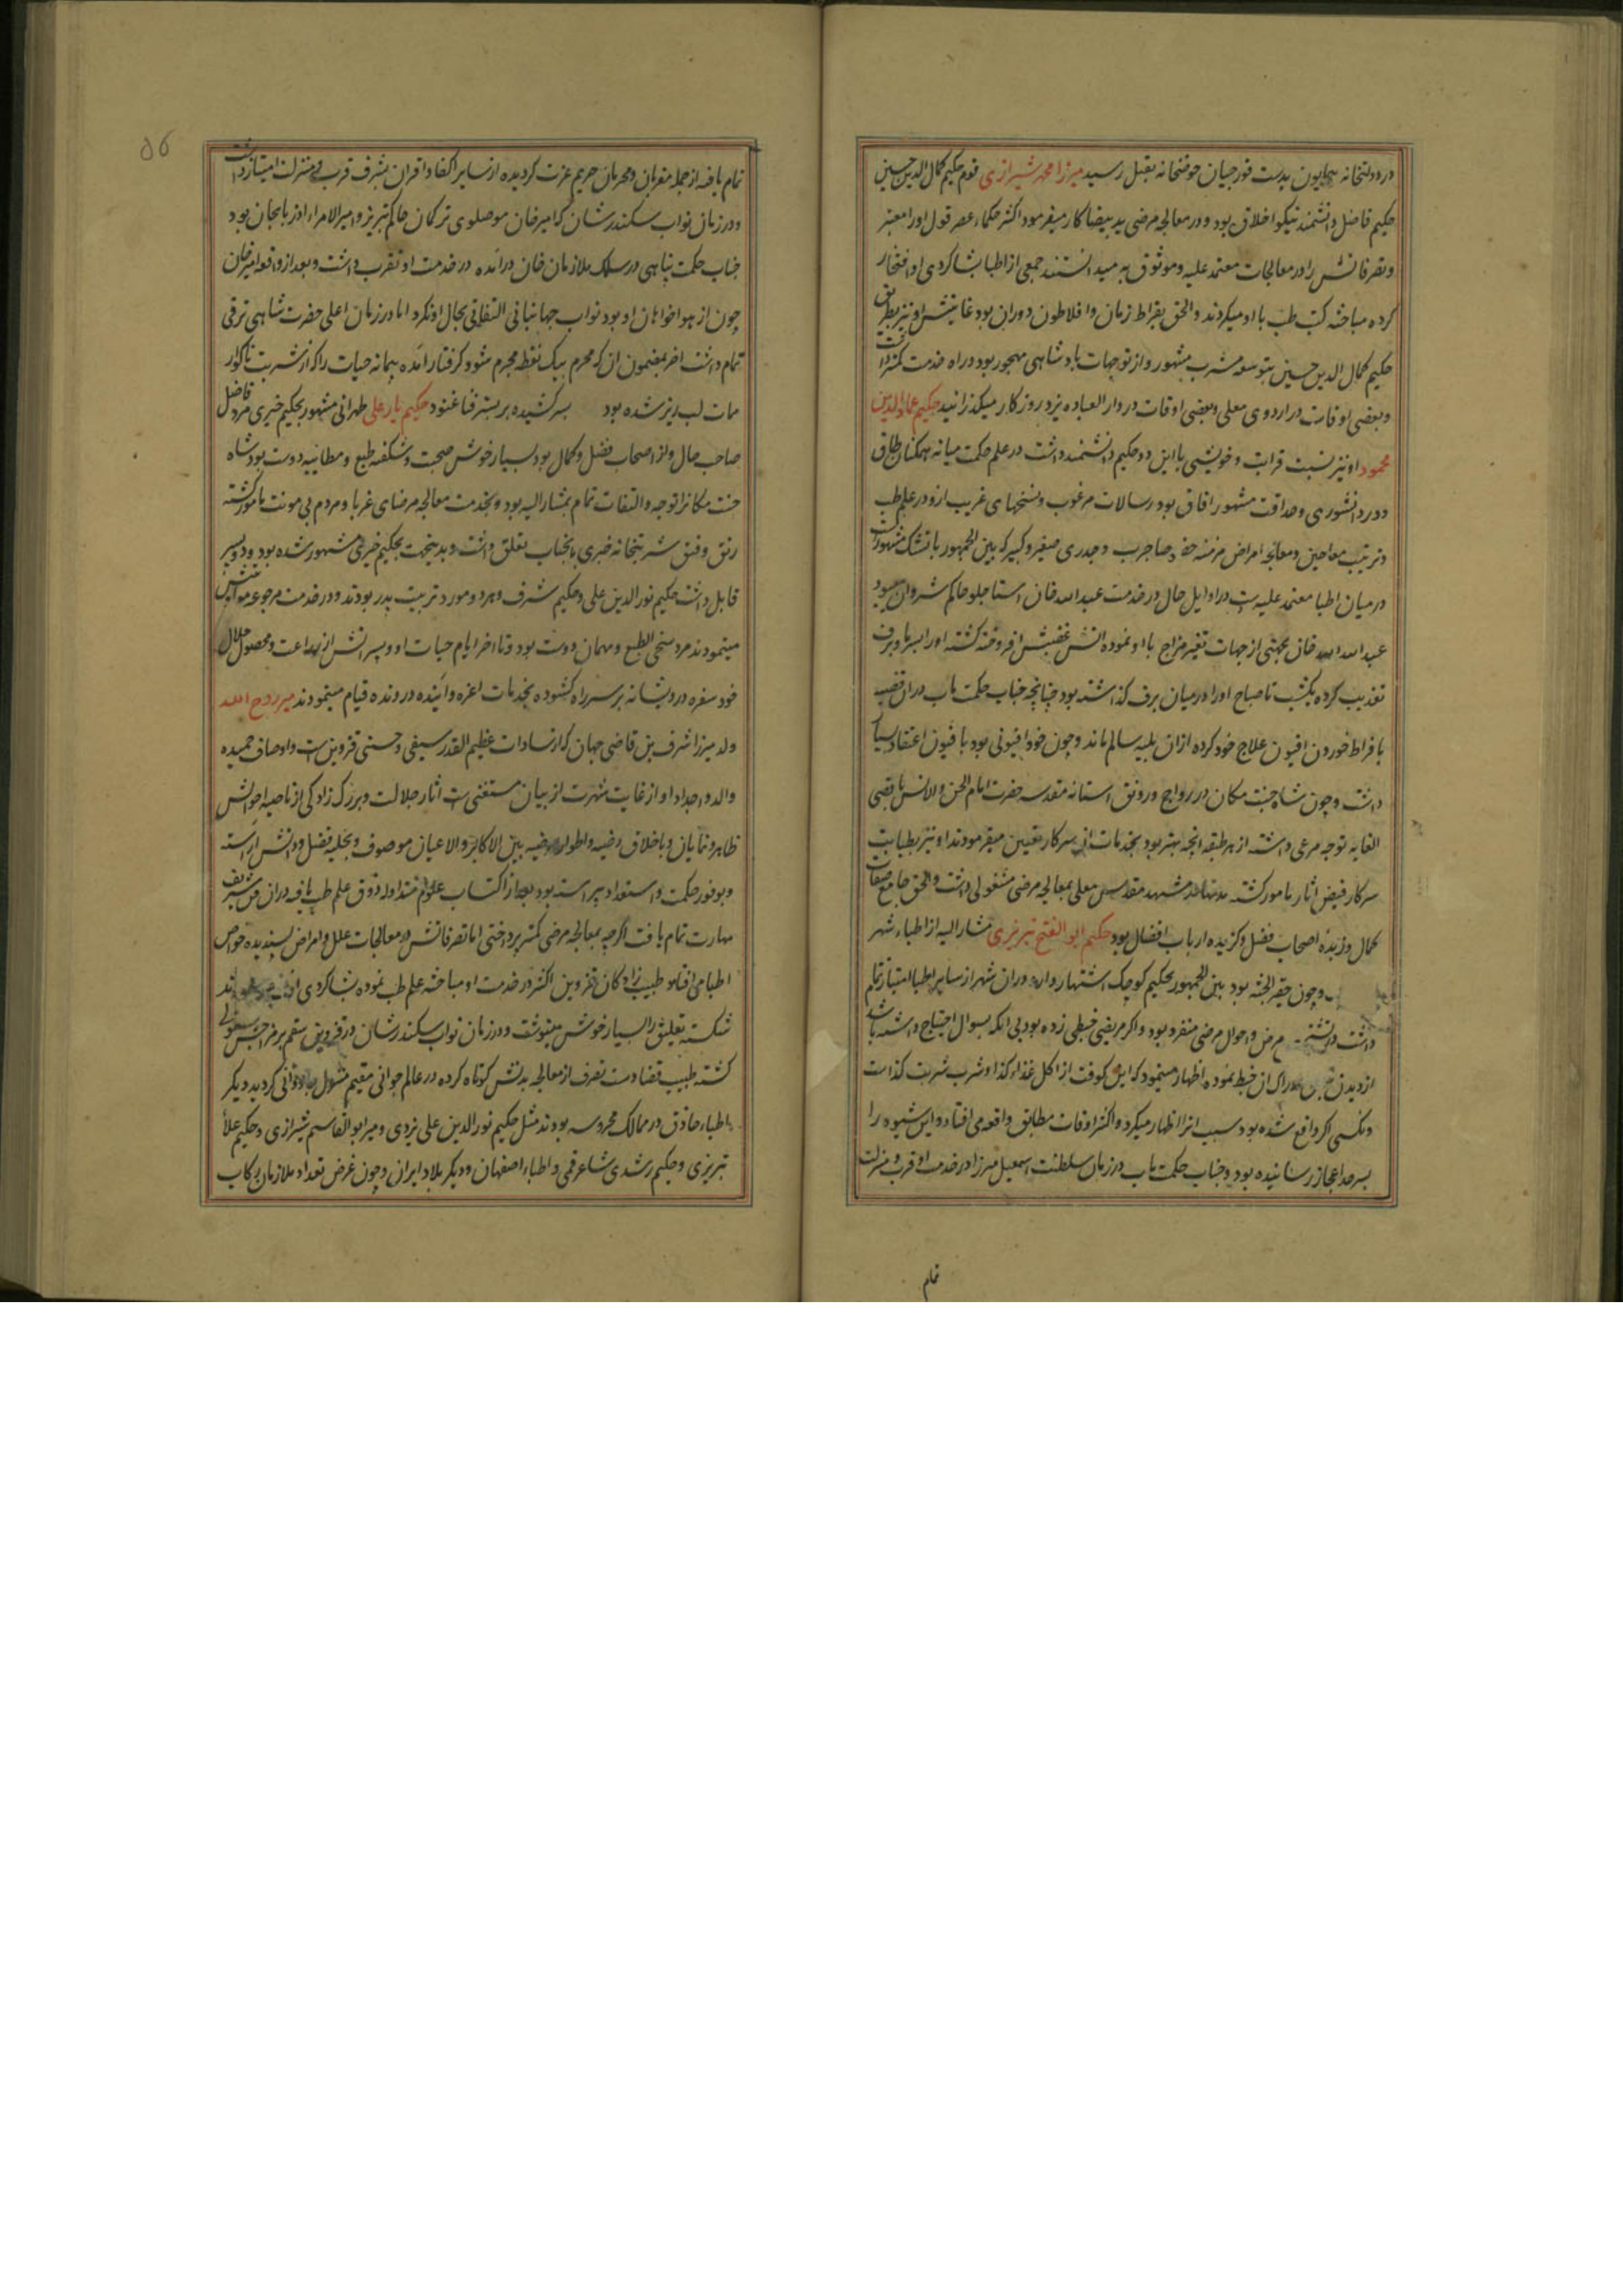 در دولتخانه همایون بدست قورچیان حوضخانه بقتل رسید میرزا محمد شیرازی قوم حکیم کمال الدین حسین
حکیم فاضل دانشمند نیکو اخلاق بود و در معالجه مرضی ید بیضا کار میفرمود اکثر حکماء عصر قول او را معتبر
و تصرفاتش را در معالجات معتمد علیه و موثوق به میدانستند جمعی از اطبا بشاکردی او افتخار
کرده مباحثه کتب طب با او میکردند و الحق بقراط زمان و افلاطون دوران بود غایتش او نیز بطریق
حکیم کمال الدین حسین بتوسعه مشرب مشهور و از توجهات بادشاهی مهجور بود در راه خدمت کمتر داشت
و بعضی اوقات در اردوی معلی و بعضی اوقات در دار العباده یزد روزکار میکذرانید حکیم عماد الدین
محمود او نیز نسبت قرابت و خویشی با این دو حکیم دانشمند داشت در علم حکمت میانه همکنان طاق
و در دانشوری و حداقت مشهور افاق بود رسالات مرغوب و نسخهای غریب ازو در علم طب
و ترتیب معاجین و معالجه امراض مزمنه صاحب و جدری صغیر و کبیر که بین الجمهور باتشک مشهورست
در میان اطبا معتمد علیه ست در اوایل حال در خدمت عبدالله خان استاجلو حاکم شروان میبود
عبدالله خان بجهتی از جهات تغیر مزاج با او نموده اتش غضبش افروخته کشته او را بسرما و برف
تعذیب کرده یکشب تا صباح او را در میان برف کذاشته بود چنانچه جناب حکمت ماب در ان قضیه
بافراط خوردن افیون علاج خود کرده ازان بلیه سالم ماند و چون خود افیونی بود بافیون اعتقاد بسیار
داشت و چون شاه جنت مکان در رواج و رونق استانه مقدسه حضرت امام الجن و الانس باقصی
الغایه توجه مرعی داشته از هر طبقه انچه بهتر بود بخدمات ان سرکار تعیین میفرمودند او نیز بطبابت
سرکار فیض اثار مامور کشته مدتها در مشهد مقدس معلی بمعالجه مرضی مشغولی داشت و الحق جامع صفات
کمال و زبده اصحاب فضل و کزیده ارباب افضال بود حکیم ابو الفتح تبریزی مشار الیه از اطباء شهر
و چون حقیر الجثه بود بین الجمهور بحکیم کوچک اشتهار دارد در ان شهر از سایر اطبا امتیاز تمام
داشت مرض و احوال مرضی منفرد بود و اکر مریضی خبطی زده بود بی انکه بسوال احتیاج داشته باشد
از دیدن ادراک ان خبط نموده اظهار مینمود که این کوفت از اکل غذاء کذا و شرب شربت کذاست
و نکسی اکر واقع شده بود سبب انرا اظهار میکرد و اکثر اوقات مطابق واقعه می افتاد و این شیوه را
بسرحد اعجاز رسانیده بود و جناب حکمت ماب در زمان سلطنت اسمعیل میرزا در خدمت او قرب و منزلت
تمام
۵۶
تمام یافته از جمله مقربان و محرمان حریم عزت کردیده از سایر اکفا و اقران بشرف قرب و منزلت امتیاز داشت
و در زمان نواب سکندر شان که امیر خان موصلوی ترکمان حاکم تبریز و امیر الامراء اذربایجان بود
جناب حکمت پناهی در سلک ملازمان خان درآمده در خدمت او تقرب داشت و بعد از واقعه امیر خان
چون از هواخواهان او بود نواب جهانبانی التفاتی بحال او نکرد اما در زمان اعلی حضرت شاهی ترقی
تمام داشت اخر بمضمون ان که محرم بیک نقطه مجرم شود کرفتار آمده پیمانه حیات را که از شربت ناکوار
ممات لب ریز شده بود بسر کشیده بر بستر فنا غنود حکیم یار علی طهرانی مشهور بحکیم خیری مرد فاضل
صاحب حال و از اصحاب فضل و کمال بود بسیار خوش صحبت و شکفته طبع و مطایبه دوست بود شاه
جنت مکانرا توجه و التفات تمام بمشار الیه بود و بخدمت معالجه مرضای غربا و مردم بی مونت مامور کشته
رتق و فتق شربتخانه خیری بانجناب تعلق داشت و بدینجهت بحکیم خیری مشهور شده بود و دو پسر
قابل داشت حکیم نور الدین علی و حکیم شرف و هر دو مورد تربیت پدر بودند و در خدمت مرجوعه موافقتش
مینمودند مرد سخی الطبع و مهمان دوست بود و تا اخر ایام حیات او و پسرانش از زراعت و محصول حلال
خود سفره درویشانه بر سر راه کشوده بخدمات اعزه و آینده و رونده قیام مینمودند میر روح الله
ولد میرزا شرف بن قاضی جهان که از سادات عظیم القدر سیفی حسنی قزوین ست و اوصاف حمیده
والد و اجداد او از غایت شهرت از بیان مستغنی ست اثار جلالت و بزرک زادکی از ناصیه احوالش
ظاهر و نمایان و باخلاق رضیه و اطوار مرضیه بین الاکابر و الاعیان موصوف و بحلیه فضل و دانش اراسته
و بوفور حکمت و استعداد پیراسته بود بعد از اکتساب علوم متداوله ذوق علم طب یافته در ان فن شریف
مهارت تمام یافت اکرچه بمعالجه مرضی کمتر پرداختی اما تصرفاتش در معالجات علل و امراض پسندیده خواص
اطبا می افتاد طبیب زادکان قزوین اکثر در خدمت او مباحثه علم طب نموده بشاکردی او
شکسته تعلیق را بسیار خوش مینوشت و در زمان نواب سکندر شان در قزوین سقم بر مزاجش مستولی
کشته طبیب قضا دست تصرف از معالجه بدنش کوتاه کرده در عالم جوانی مقیم منزل جاودانی کردید دیکر
اطباء حاذق در ممالک محروسه بودند مثل حکیم نور الدین علی یزدی و میر ابو القاسم شیرازی و حکیم علاء
تبریزی و حکیم رشدی شاعر قمی و اطباء اصفهان و دیکر بلاد ایران و چون غرض تعداد ملازمان رکاب